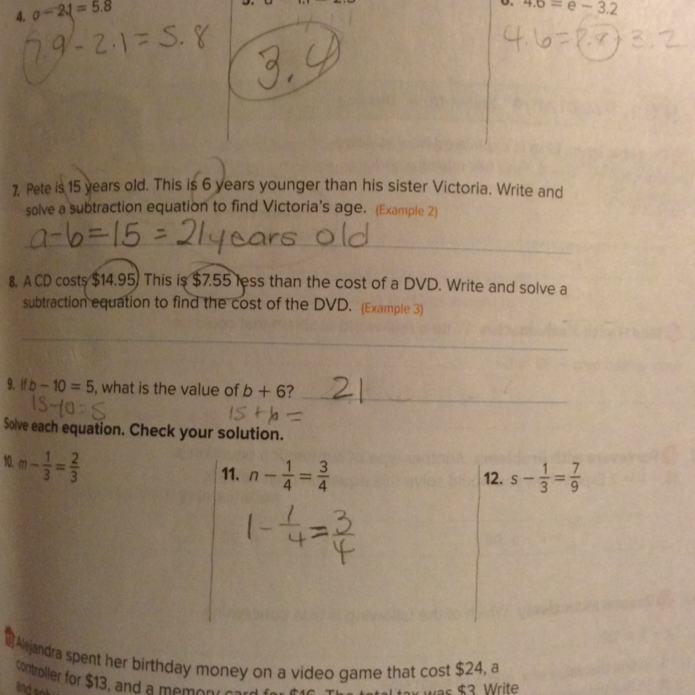 4. o - 2.1 = 5.8
6. 4.6 = e - 3.2
7.9 - 2.1 = 5.8
3.4
4.6 = 7.8 - 3.2
7. Pete is 15 years old. This is 6 years younger than his sister Victoria. Write and
solve a subtraction equation to find Victoria's age. (Example 2)
a-6=15 = 21 years old
8. A CD costs $14.95. This is $7.55 less than the cost of a DVD. Write and solve a
subtraction equation to find the cost of the DVD. (Example 3)
9. If b - 10 = 5, what is the value of b + 6? 21
15-10=5 15+6=
Solve each equation. Check your solution.
10. m - 1/3 = 2/3
11. n - 1/4 = 3/4
12. s - 1/3 = 7/9
1 - 1/4 = 3/4
Alejandra spent her birthday money on a video game that cost $24, a
controller for $13, and a memory card for $16. The total tax was $3. Write